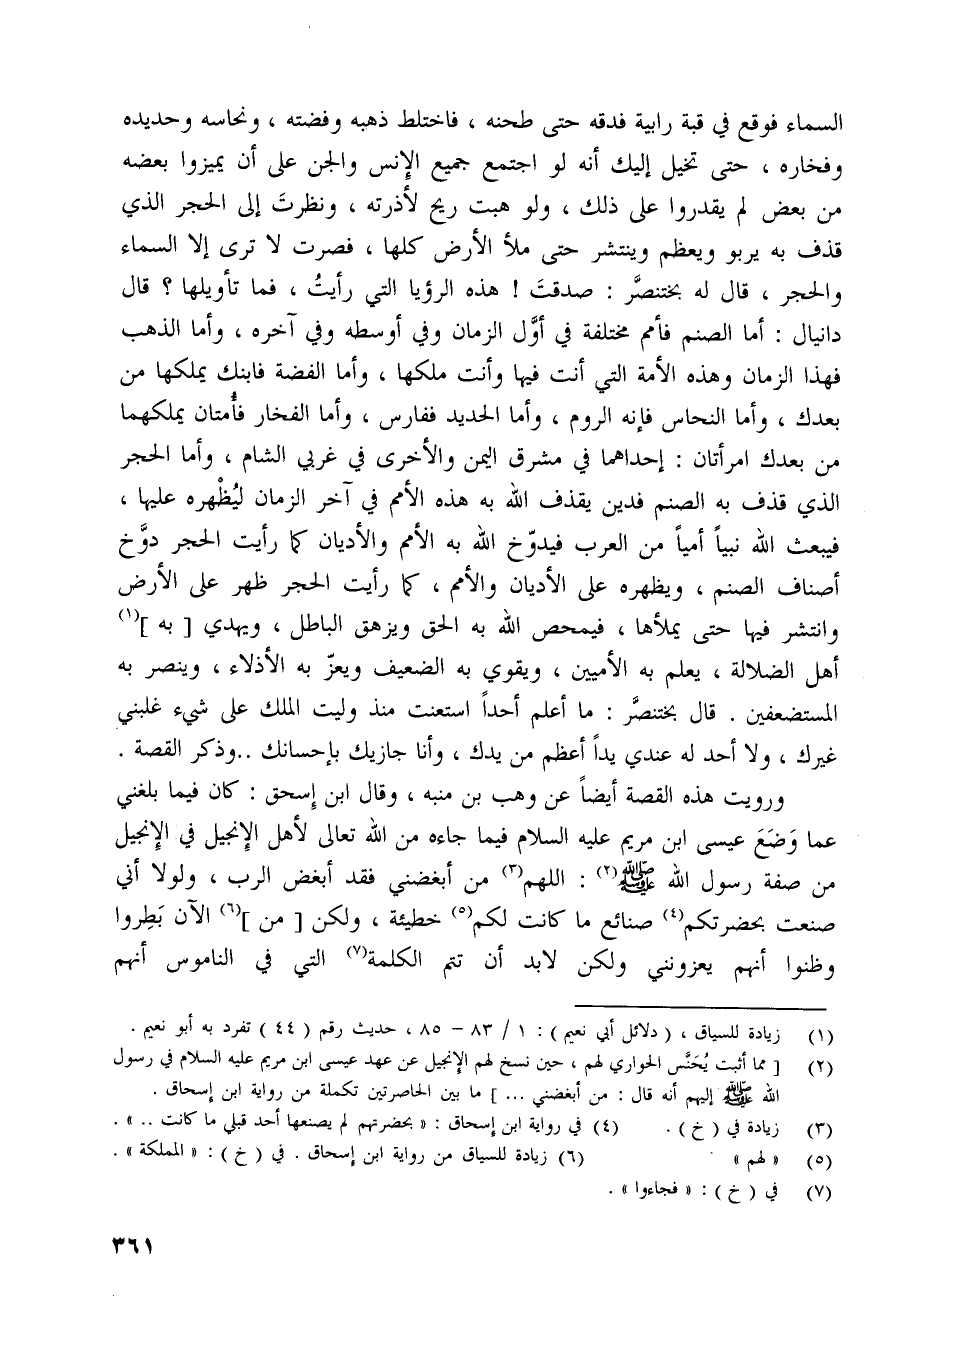 السماء فوقع في قبة رابية فدقه حتى طحنه ، فاختلط ذهبه وفضته ، ونحاسه وحديده
وفخاره ، حتى تخيل إليك أنه لو اجتمع جميع الإنس والجن على أن يميزوا بعضه
من بعض لم يقدروا على ذلك ، ولو هبت ريح لأذرته ، ونظرتَ إلى الحجر الذي
قذف به يربو ويعظم وينتشر حتى ملأ الأرض كلها ، فصرت لا ترى إلا السماء
والحجر ، قال له بختنصَّر : صدقتَ ! هذه الرؤيا التي رأيتُ ، فما تأويلها ؟ قال
دانيال : أما الصنم فأمم مختلفة في أوَّل الزمان وفي أوسطه وفي آخره ، وأما الذهب
فهذا الزمان وهذه الأمة التي أنت فيها وأنت ملكها ، وأما الفضة فابنك يملكها من
بعدك ، وأما النحاس فإنه الروم ، وأما الحديد ففارس ، وأما الفخار فأُمتان يملكهما
من بعدك امرأتان : إحداهما في مشرق اليمن والأخرى في غربي الشام ، وأما الحجر
الذي قذف به الصنم فدين يقذف الله به هذه الأمم في آخر الزمان ليُظْهره عليها ،
فيبعث الله نبياً أمياً من العرب فيدوّخ الله به الأمم والأديان كما رأيت الحجر دوَّخ
أصناف الصنم ، ويظهره على الأديان والأمم ، كما رأيت الحجر ظهر على الأرض
وانتشر فيها حتى يملأها ، فيمحص الله به الحق ويزهق الباطل ، ويهدي [ به ](١)
أهل الضلالة ، يعلم به الأميين ، ويقوي به الضعيف ويعزّ به الأذلاء ، وينصر به
المستضعفين . قال بختنصَّر : ما أعلم أحداً استعنت منذ وليت الملك على شيء غلبني
غيرك ، ولا أحد له عندي يداً أعظم من يدك ، وأنا جازيك بإحسانك ..وذكر القصة .
ورويت هذه القصة أيضاً عن وهب بن منبه ، وقال ابن إسحق : كان فيما بلغني
عما وَضَعَ عيسى ابن مريم عليه السلام فيما جاءه من الله تعالى لأهل الإنجيل في الإنجيل
من صفة رسول الله ﷺ(٢) : اللهم(٣) من أبغضني فقد أبغض الرب ، ولولا أني
صنعت بحضرتكم(٤) صنائع ما كانت لكم(٥) خطيئة ، ولكن [ من ](٦) الآن بَطِروا
وظنوا أنهم يعزونني ولكن لابد أن تتم الكلمة(٧) التي في الناموس أنهم
(١) زيادة للسياق ، ( دلائل أبي نعيم ) : ١ / ٨٣ – ٨٥ ، حديث رقم ( ٤٤ ) تفرد به أبو نعيم .
(٢) [ مما أثبت يُحَنَّس الحواري لهم ، حين نسخ لهم الإنجيل عن عهد عيسى ابن مريم عليه السلام في رسول
الله ﷺ إليهم أنه قال : من أبغضني ... ] ما بين الحاصرتين تكملة من رواية ابن إسحاق .
(٣) زيادة في ( خ ) . (٤) في رواية ابن إسحاق : « بحضرتهم لم يصنعها أحد قبلي ما كانت .. » .
(٥) « لهم » (٦) زيادة للسياق من رواية ابن إسحاق . في ( خ ) : « المملكة » .
(٧) في ( خ ) : « فجاءوا » .
٣٦١